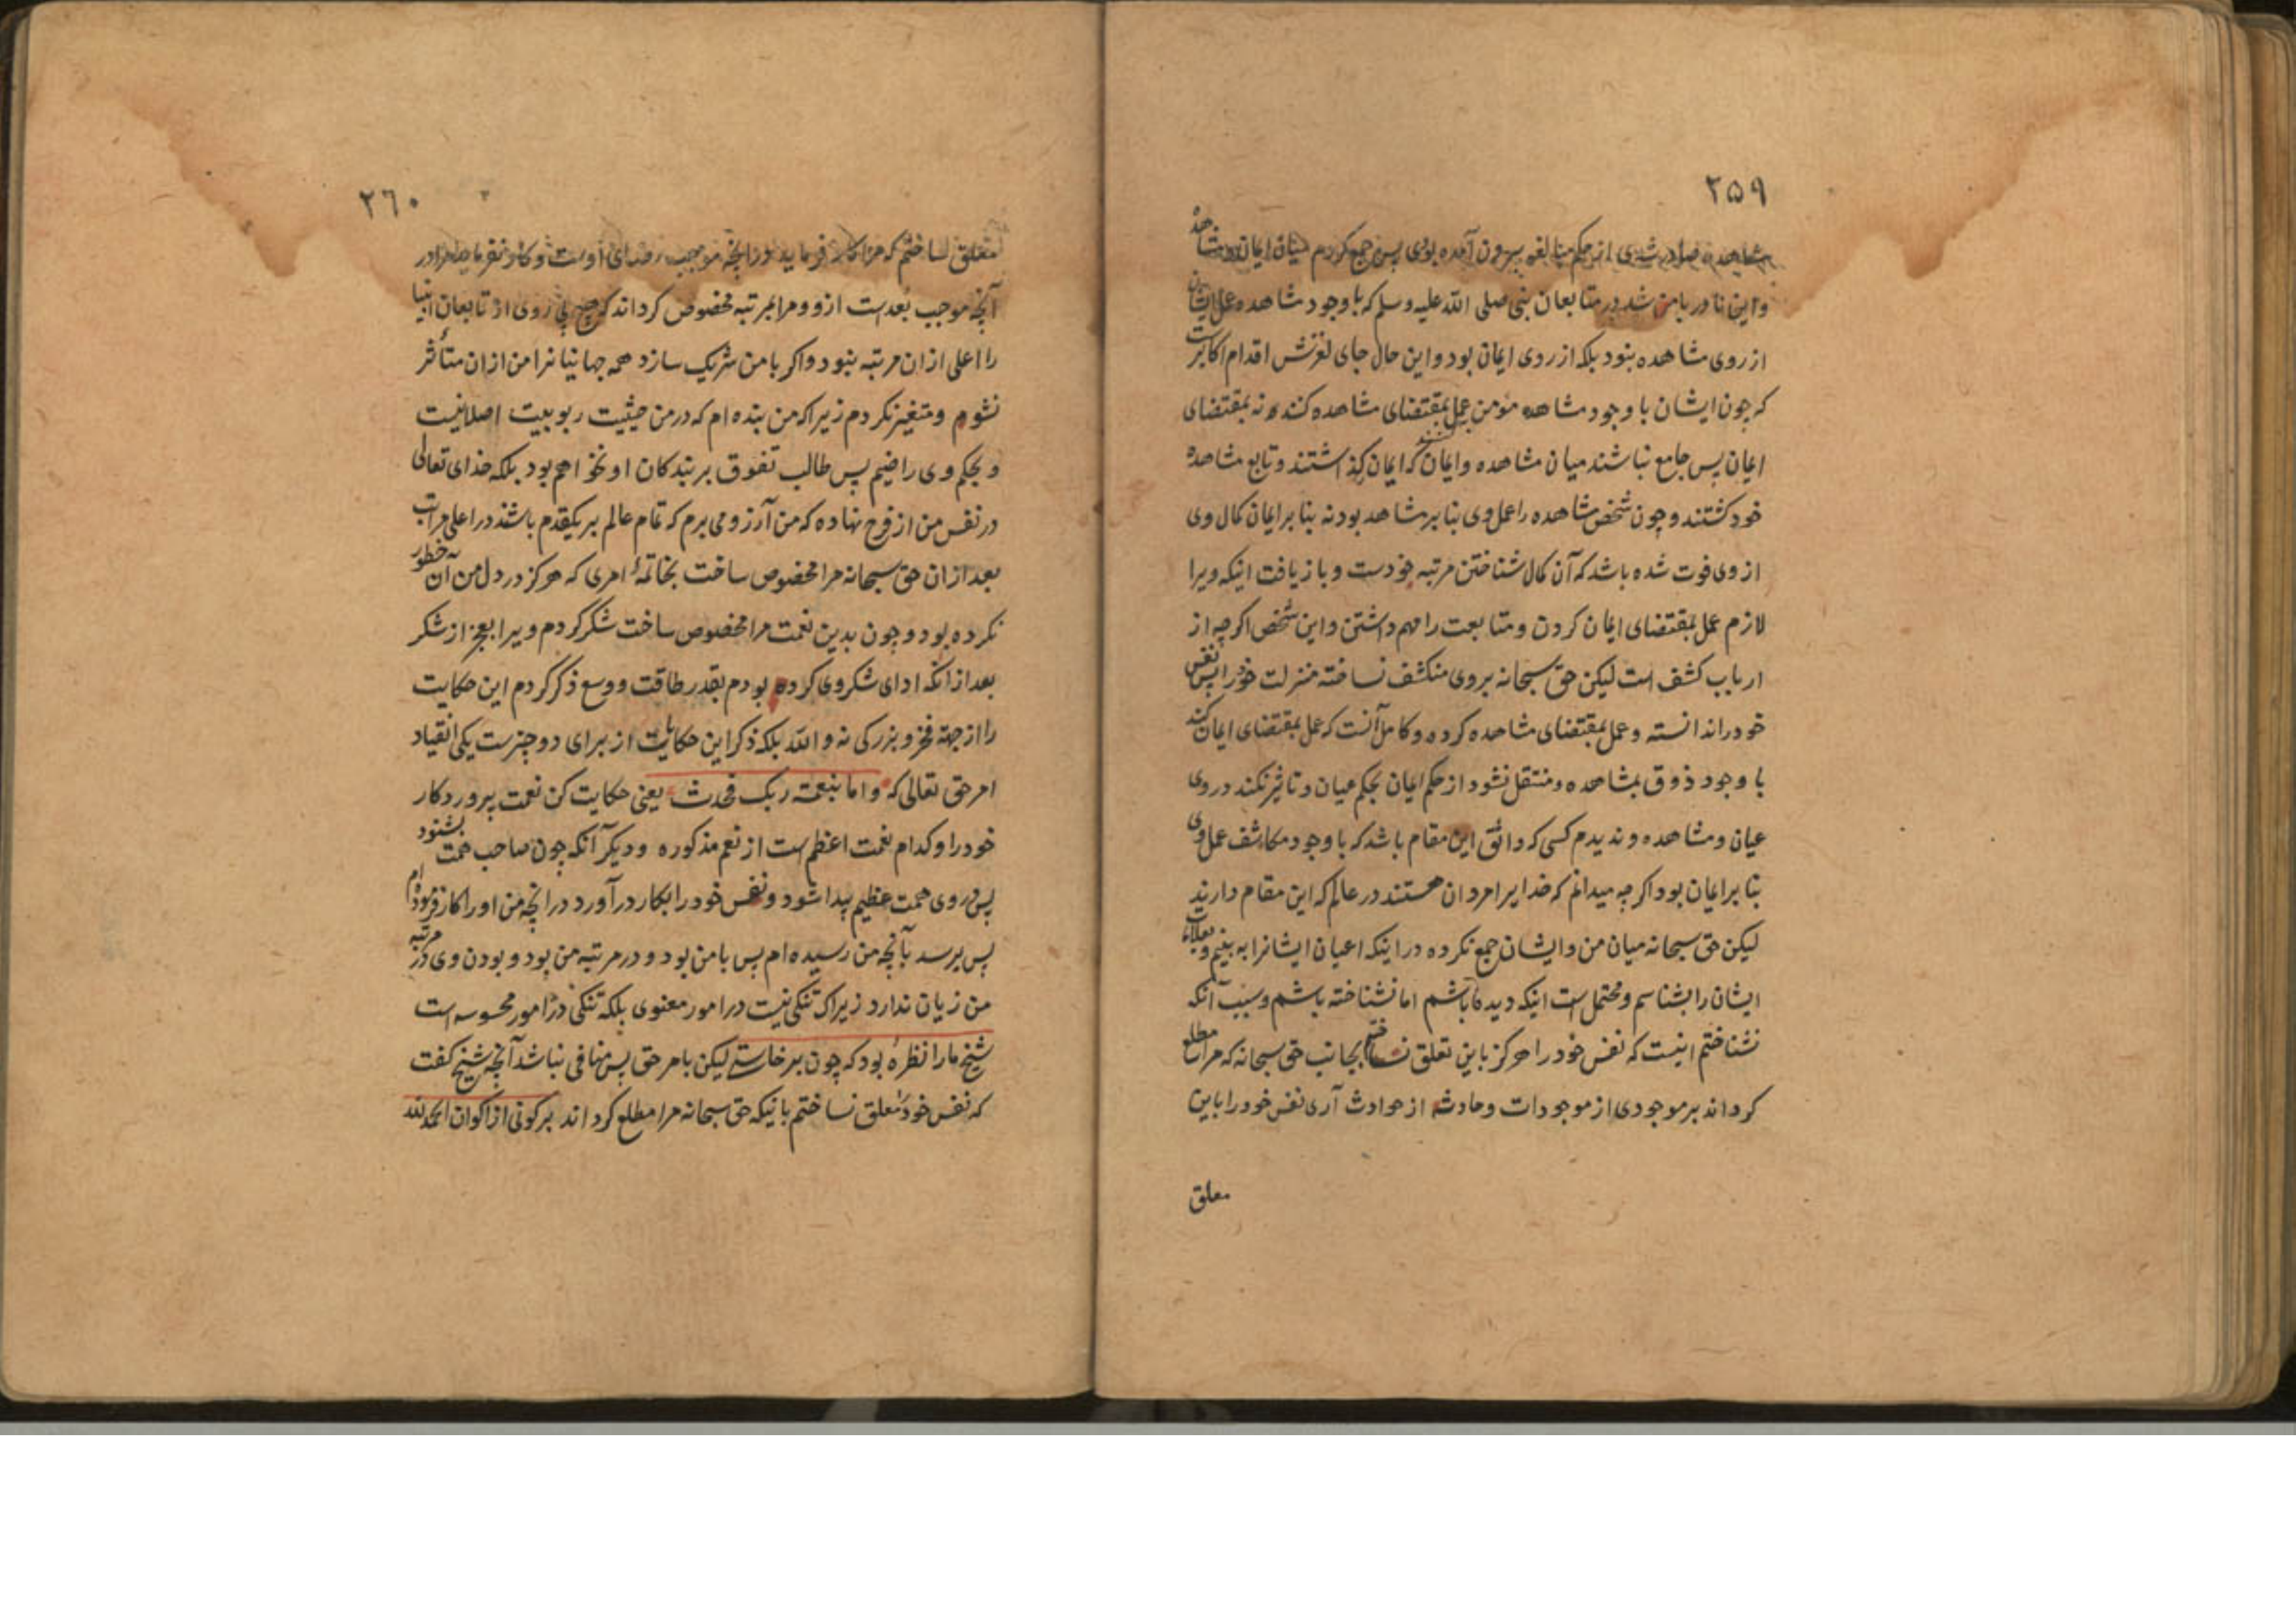 ٢٥٩
مشاهده صادر شدی از حکم مبالغه بیرون آمده بودی پس جمع کردم میان ایمان و مشاهده
و این نادر با من شد در متابعان نبی صلی الله علیه وسلم که با وجود مشاهده عمل ایشان
از روی مشاهده بنود بلکه از روی ایمان بود و این حال جای لغزش اقدام اکابرست
که چون ایشان با وجود مشاهده مؤمن به عمل بمقتضای مشاهده کنند نه بمقتضای
ایمان پس جامع نباشند میان مشاهده و ایمان که ایمان گذاشتند و تابع مشاهده
خود گشتند و چون شخص مشاهده را عمل وی بنا بر مشاهد بود نه بنا بر ایمان کمال وی
از وی فوت شده باشد که آن کمال شناختن مرتبه خودست و بازیافت اینکه ویرا
لازم عمل بمقتضای ایمان کردن و متابعت را مهم داشتن و این شخص اگر چه از
ارباب کشف است لیکن حق سبحانه بروی منکشف نساخته منزلت خود را پس نفس
خود را ندانسته و عمل بمقتضای مشاهده کرده و کامل آنست که عمل بمقتضای ایمان کند
با وجود ذوق بمشاهده و منتقل نشود از حکم ایمان بحکم عیان و تاثیر نکند در وی
عیان و مشاهده و ندیدم کسی که ذائق این مقام باشد که با وجود مکاشف عمل وی
بنا بر ایمان بود اگر چه میدانم که خدایرا مردان هستند در عالم که این مقام دارند
لیکن حق سبحانه میان من و ایشان جمع نکرده در اینکه اعیان ایشانرا به بینم و
ایشان را بشناسم و محتمل است اینکه دیده باشم اما نشناخته باشم و سبب آنکه
نشناختم اینست که نفس خود را هرگز باین تعلق نساختم بجانب حق سبحانه که مرا مطلع
گرداند بر موجودی از موجودات و حادثه از حوادث آری نفس خود را باین
معلق
٢٦٠
متعلق ساختم که مرا کار فرماید در آنچه موجب رضای اوست و کار نفرماید مرا در
آنچه موجب بعدست ازو و مرا بمرتبه مخصوص گرداند که هیچ پی روی از تابعان انبیا
را اعلی ازان مرتبه بنود و اگر با من شریک سازد همه جهانیانرا من ازان متأثر
نشوم و متغیر نگردم زیرا که من بنده ام که در من حیثیت ربوبیت اصلا نیست
و بحکم وی راضیم پس طالب تفوق بر بندگان او نخواهم بود بلکه خدای تعالی
در نفس من از فرح نهاده که من آرزو می برم که تمام عالم بر یکقدم باشند در اعلی مراتب
بعد ازان حق سبحانه مرا مخصوص ساخت بخاتمهٔ امری که هرگز در دل من آن خطور
نکرده بود و چون بدین نعمت مرا مخصوص ساخت شکر کردم ویرا بعجز از شکر
بعد ازآنکه ادای شکر وی کرده بودم بقدر طاقت و وسع ذکر کردم این حکایت
را از جهة فخر و بزرگی نه والله بلکه ذکر این حکایات از برای دو چیزست یکی انقیاد
امر حق تعالی که واما بنعمة ربک فحدث یعنی حکایت کن نعمت پروردگار
خود را و کدام نعمت اعظم است از نعم مذکوره و دیگر آنکه چون صاحب همت بشنود
پس در وی همت عظیم پیدا شود و نفس خود را بکار درآورد در آنچه من او را کار فرموده ام
پس برسد بآنچه من رسیده ام پس با من بود و در مرتبه من بود و بودن وی در مرتبه
من زیان ندارد زیرا که تنگی نیست در امور معنوی بلکه تنگی در امور محسوسه است
شیخ ما را نظره بود که چون برخاستی لیکن بامر حق پس منافی نباشد آنچه شیخ گفت
که نفس خود معلق نساختم بانیکه حق سبحانه مرا مطلع گرداند بر کونی از اکوان الحمدلله